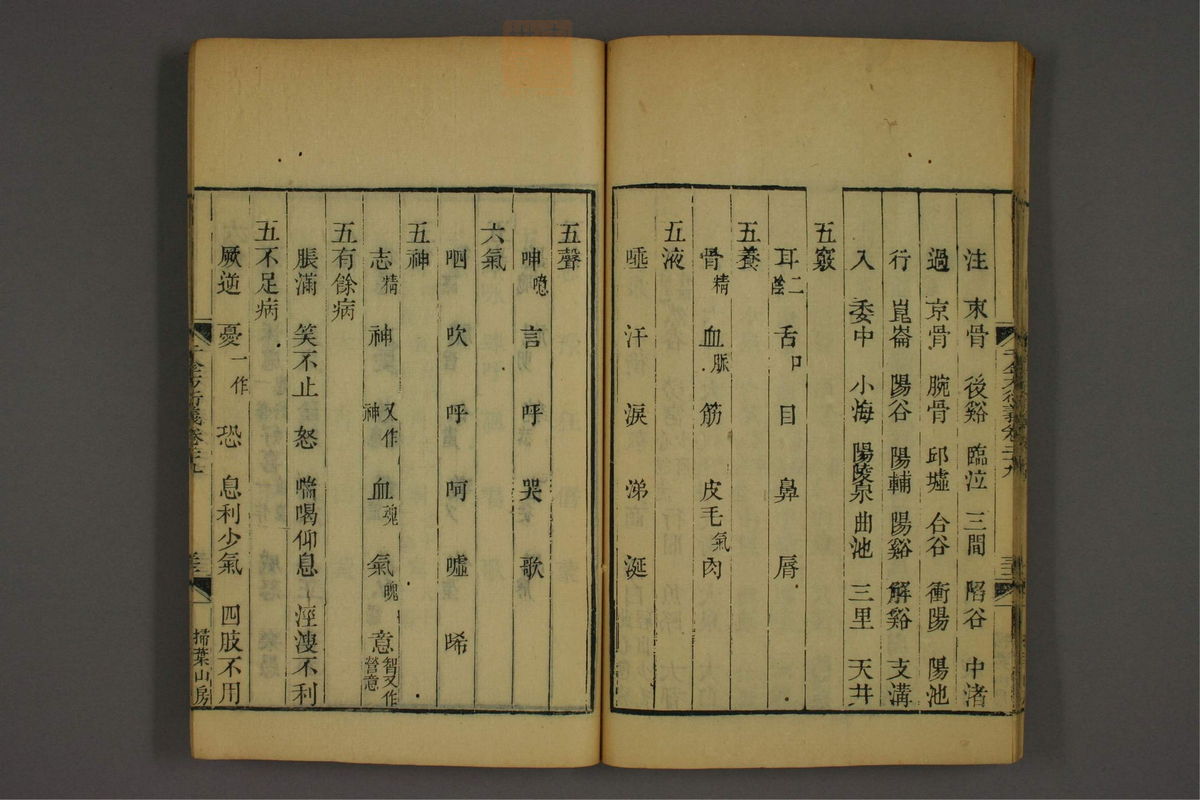 注 束骨 後谿 臨泣 三間 陷谷 中渚
過 京骨 腕骨 邱墟 合谷 衝陽 陽池
行 崑崙 陽谷 陽輔 陽谿 解谿 支溝
入 委中 小海 陽陵泉 曲池 三里 天井
五竅
耳二陰 舌口 目 鼻 脣
五養
骨精 血脈 筋 皮毛氣 肉
五液
唾 汗 淚 涕 涎
五聲
呻噫 言 呼 哭 歌
六氣
呬 吹 呼 呵 噓 唏
五神
志精 神又作神 血魂 氣魄 意智又作營意
五有餘病
脹滿 笑不止 怒 喘喝仰息 涇溲不利
五不足病
厥逆 憂一作 恐 息利少氣 四肢不用
千金方衍義卷二十九
掃葉山房